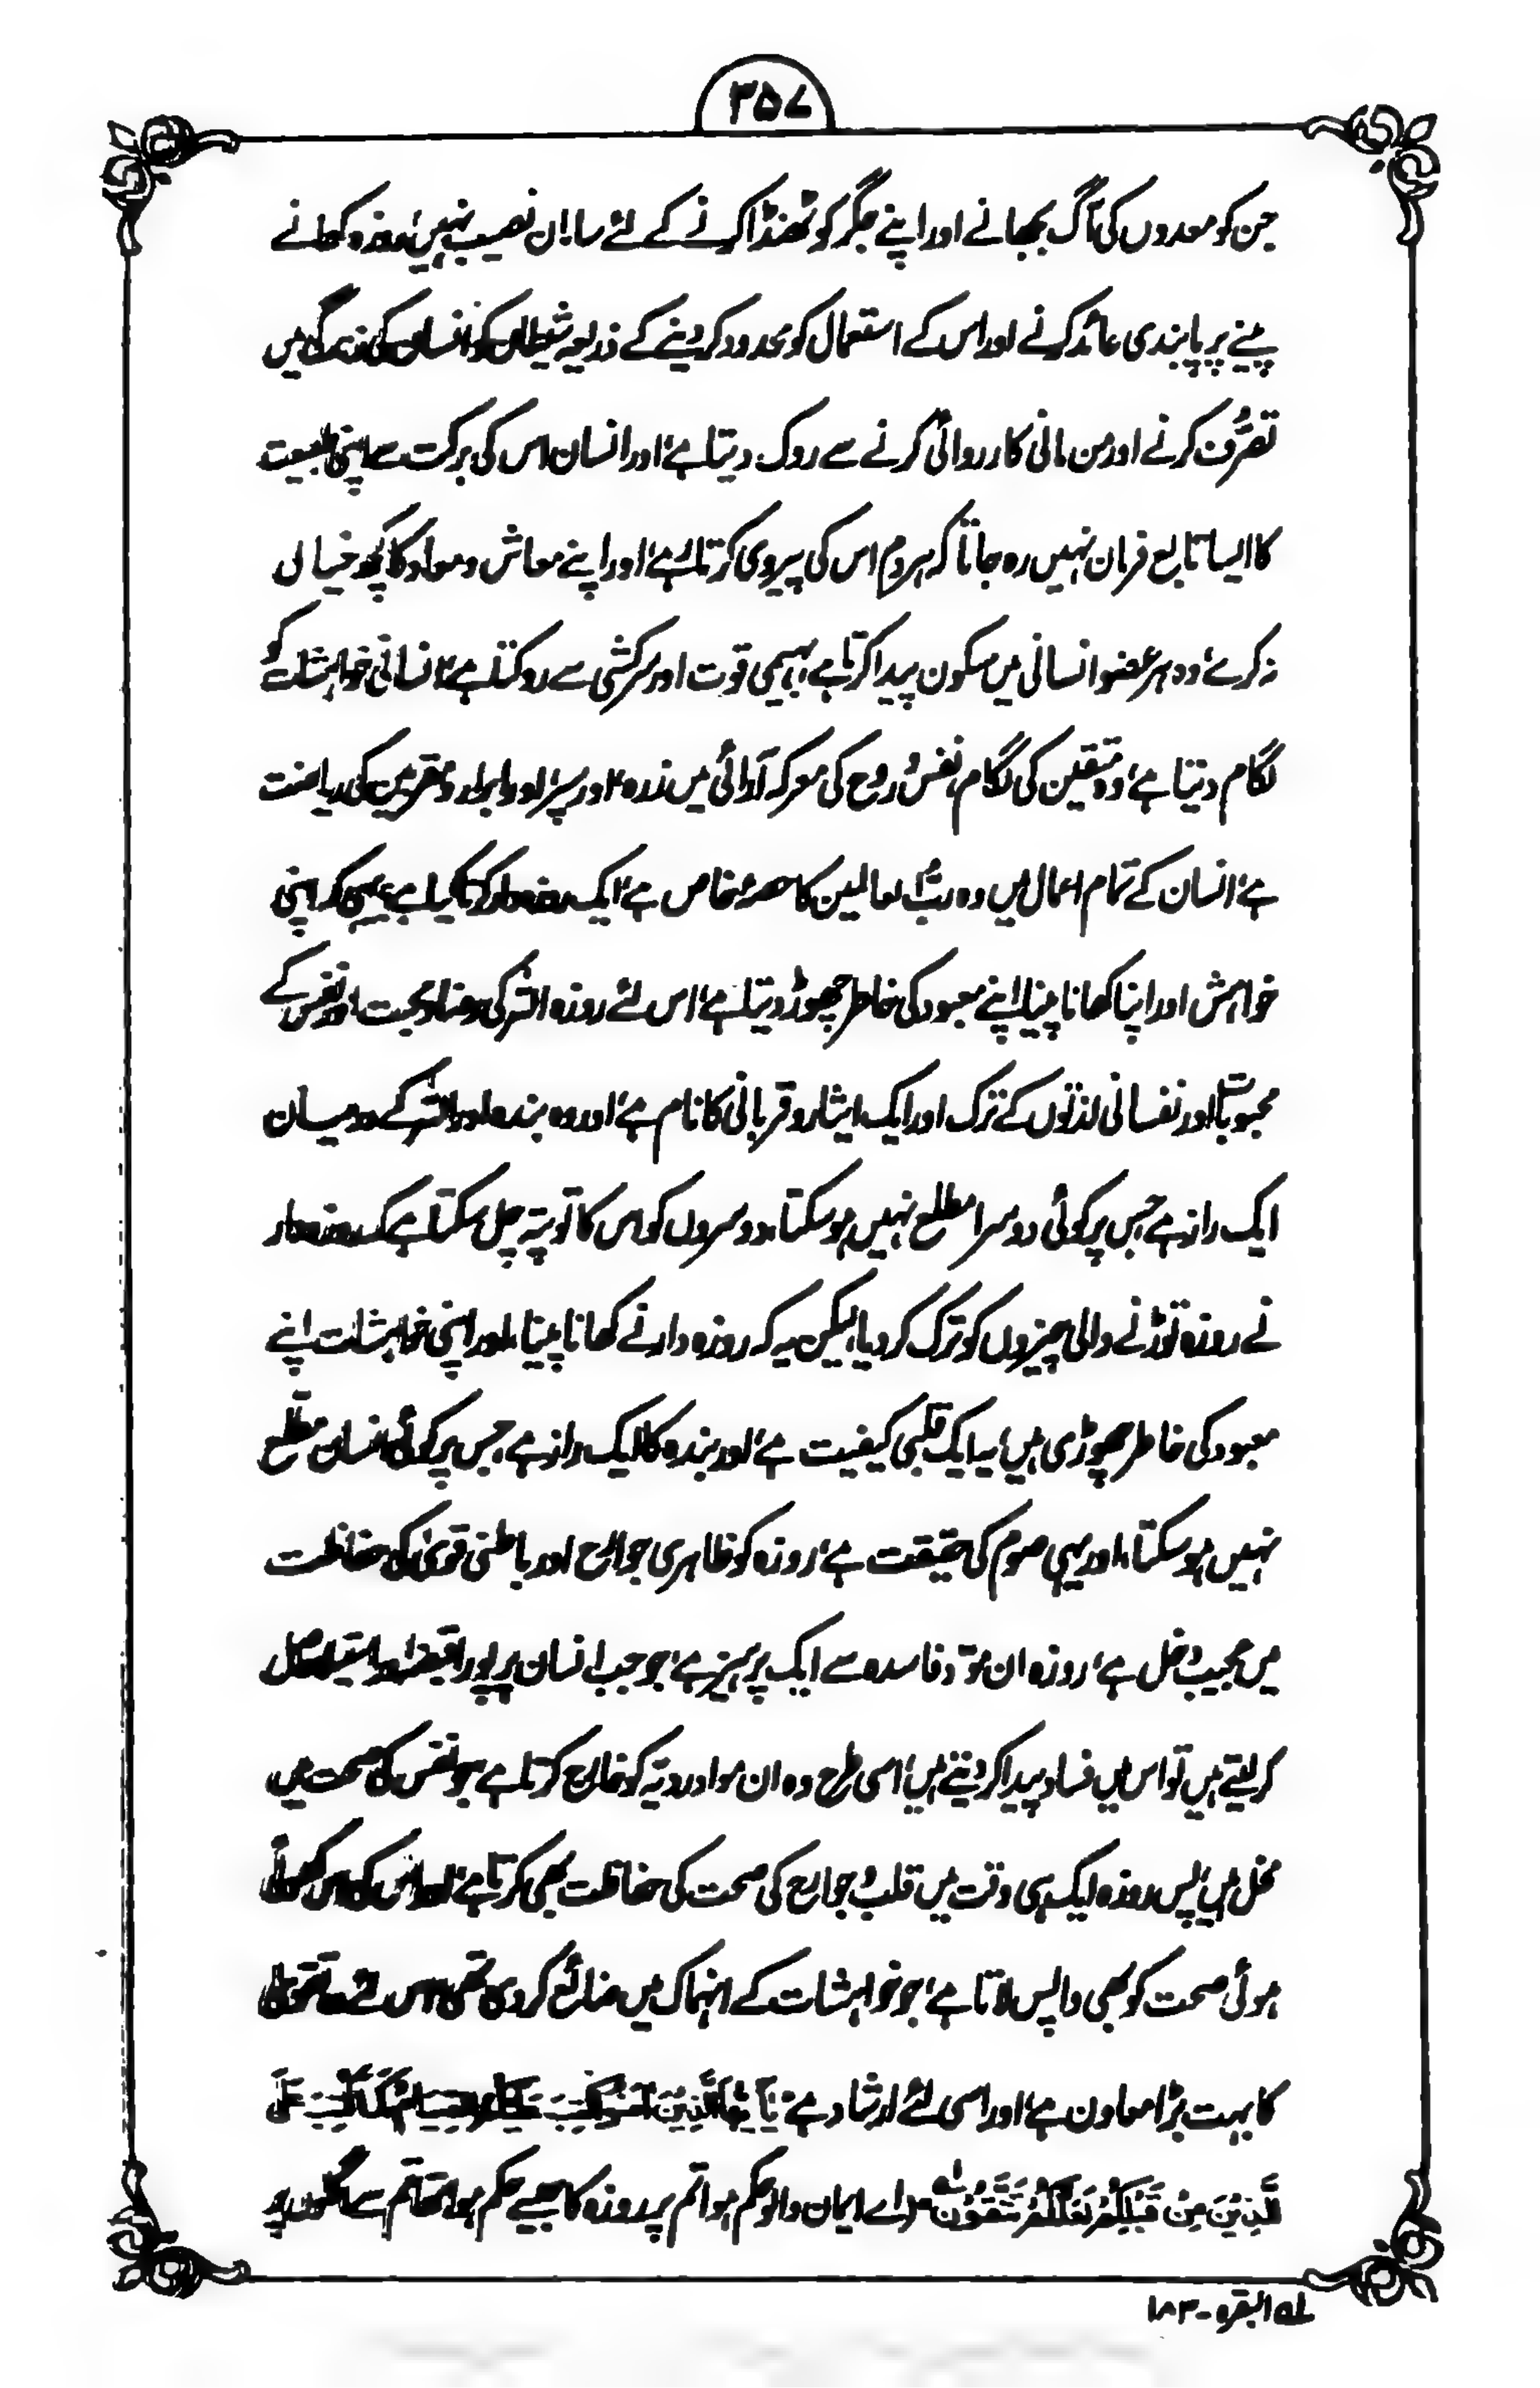 ۳۵۷
جن کو معدوں کی آگ بجھانے اور اپنے جگر کو ٹھنڈا کرنے کے لئے سامان نصیب نہیں، روزہ کھانے
پینے پر پابندی عائد کرنے اور اس کے استعمال کو محدود کر دینے کے ذریعہ شیطان کو انسان کی زندگی میں
تصرُّف کرنے اور من مانی کارروائی کرنے سے روک دیتا ہے، اور انسان اس کی برکت سے اپنی طبیعت
کا ایسا تابع فرمان نہیں رہ جاتا کہ ہر دم اس کی پیروی کرتا رہے، اور اپنے معاش و معاد کا کچھ خیال
نہ کرے، وہ ہر عضو انسانی میں سکون پیدا کرتا ہے، بہیمی قوت اور سرکشی سے روکتا ہے، نفسانی خواہشات کو
لگام دیتا ہے، وہ متقین کی لگام، نفس و روح کی معرکہ آرائی میں زرہ اور سپر، اور ابرار و مقربین کی ریاضت
ہے، انسان کے تمام اعمال میں وہ ربُّ العالمین کا حصۂ خاص ہے، ایک روزہ دار کرتا کیا ہے یہی کہ اپنی
خواہش اور اپنا کھانا پینا اپنے معبود کی خاطر چھوڑ دیتا ہے، اس لئے روزہ اللہ کی رضا و محبت اور نفس کے
محبوبات اور نفسانی لذتوں کے ترک اور ایک ایثار و قربانی کا نام ہے، اور وہ بندہ اور اللہ کے درمیان
ایک راز ہے جس پر کوئی دوسرا مطلع نہیں ہو سکتا، دوسروں کو اس کا تو پتہ چل سکتا ہے کہ روزہ دار
نے روزہ توڑنے والی چیزوں کو ترک کر دیا، لیکن یہ کہ روزہ دار نے کھانا پینا، اور اپنی خواہشات اپنے
معبود کی خاطر چھوڑی ہیں، یہ ایک قلبی کیفیت ہے، اور بندہ کا ایک راز ہے، جس پر کوئی انسان مطلع
نہیں ہو سکتا، اور یہی صوم کی حقیقت ہے، روزہ کو ظاہری جوارح اور باطنی قویٰ کی حفاظت
میں عجیب دخل ہے، روزہ ان موادّ فاسدہ سے ایک پرہیز ہے، جو جب انسان پر پورا قبضہ و استیلا حاصل
کر لیتے ہیں تو اس میں فساد پیدا کر دیتے ہیں، اسی طرح وہ ان مواد ردیّہ کو خارج کرتا ہے جو نفس کی صحت میں
مخل ہیں، پس روزہ ایک ہی وقت میں قلب و جوارح کی صحت کی حفاظت بھی کرتا ہے، اور اس کی اس کھوئی
ہوئی صحت کو بھی واپس لاتا ہے، جو خواہشات کے انہماک میں ضائع کر دی تھی، اس لئے تقویٰ
کا بہت بڑا معاون ہے، اور اسی لئے ارشاد ہے: یٰۤاَیُّہَا الَّذِیْنَ اٰمَنُوْا کُتِبَ عَلَیْکُمُ الصِّیَامُ کَمَا کُتِبَ عَلَی
الَّذِیْنَ مِنْ قَبْلِکُمْ لَعَلَّکُمْ تَتَّقُوْنَ لہ (اے ایمان والو حکم ہوا تم پر روزہ کا جیسے حکم ہوا تھا تم سے اگلوں پر
لہ البقرہ - ۱۸۳